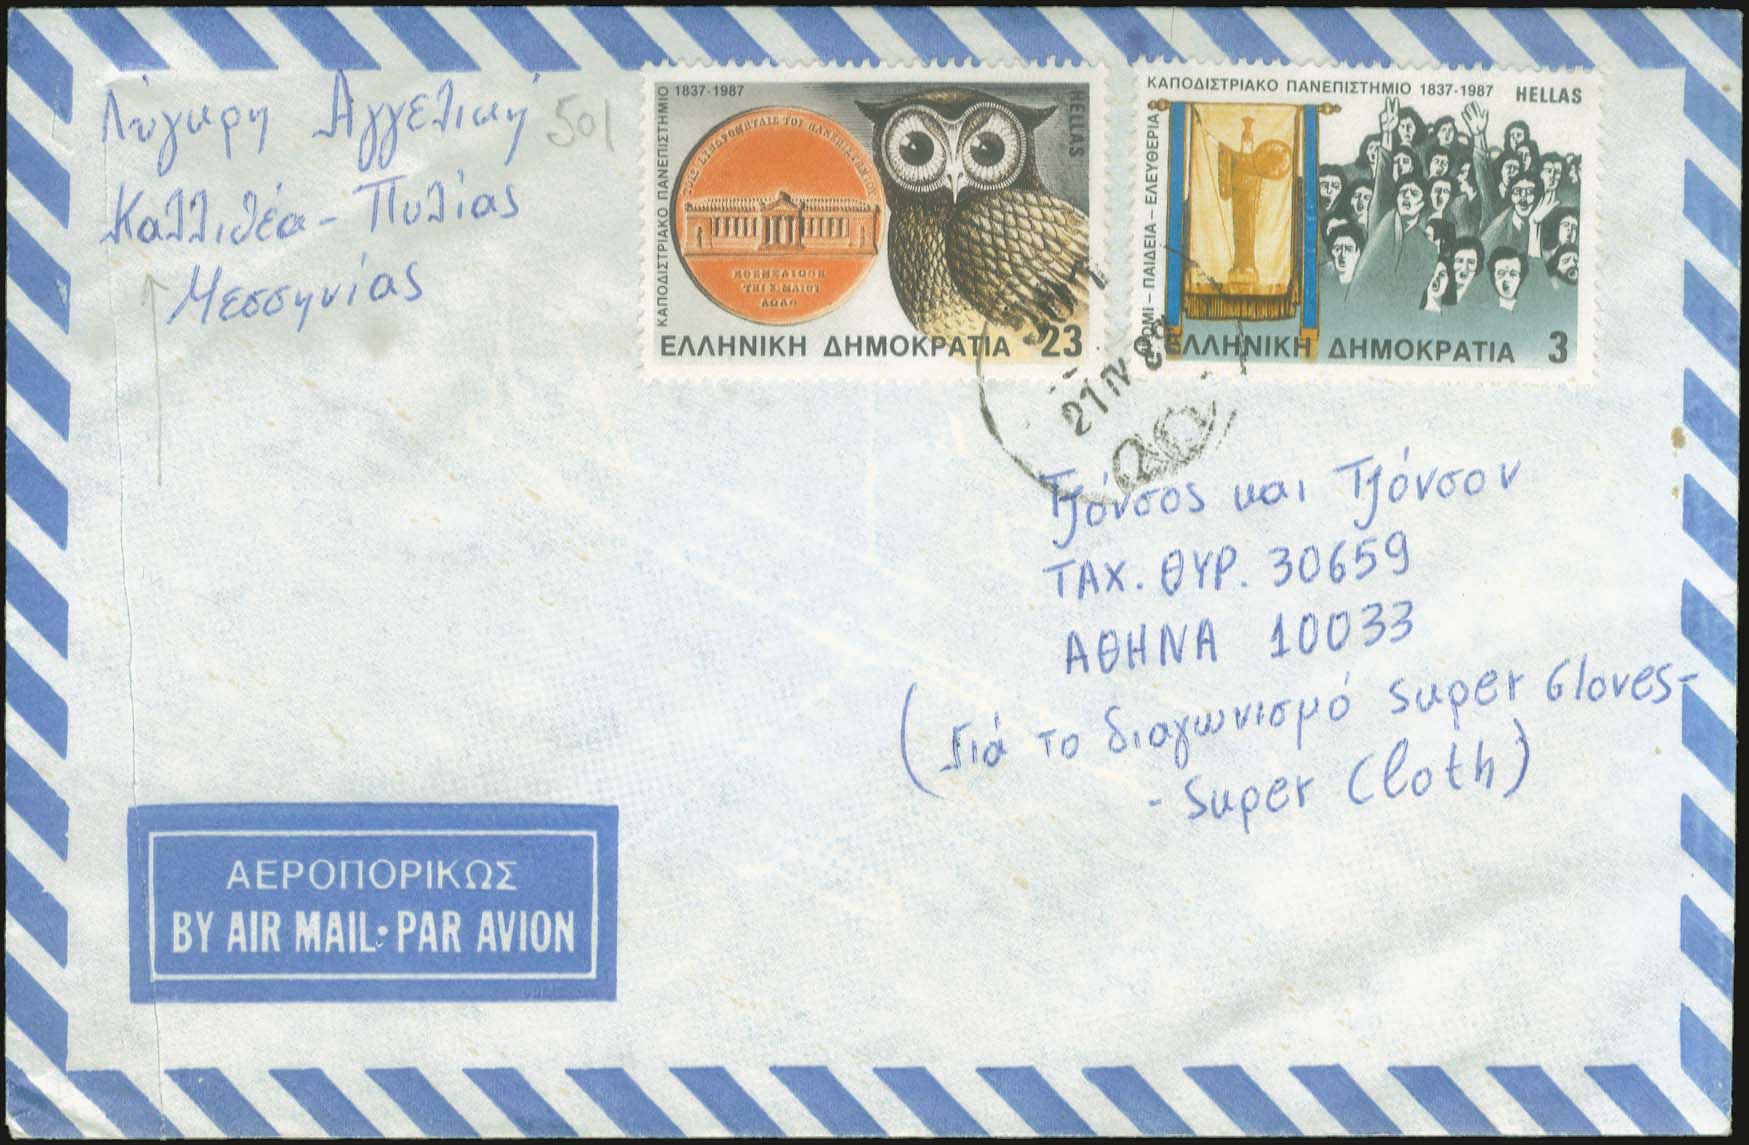 Λύγκρη Αγγελική 501
Καλλιθέα - Πυλίας
Μεσσηνίας
ΚΑΠΟΔΙΣΤΡΙΑΚΟ ΠΑΝΕΠΙΣΤΗΜΙΟ
1837-1987
HELLAS
ΤΟΙΣ ΣΥΝΔΡΟΜΗΤΑΙΣ ΤΟΥ ΠΑΝΕΠΙΣΤΗΜΙΟΥ
ΤΗΙ 2. ΜΑΙΟΥ
ΑΩΛΘ
ΕΛΛΗΝΙΚΗ ΔΗΜΟΚΡΑΤΙΑ 23
ΚΑΠΟΔΙΣΤΡΙΑΚΟ ΠΑΝΕΠΙΣΤΗΜΙΟ 1837-1987 HELLAS
ΨΩΜΙ - ΠΑΙΔΕΙΑ - ΕΛΕΥΘΕΡΙΑ
ΕΛΛΗΝΙΚΗ ΔΗΜΟΚΡΑΤΙΑ 3
21 IV 88
Τζόνσος και Τζόνσον
ΤΑΧ. ΘΥΡ. 30659
ΑΘΗΝΑ 10033
(Γιά το διαγωνισμό Super Gloves-
- Super Cloth)
ΑΕΡΟΠΟΡΙΚΩΣ
BY AIR MAIL • PAR AVION